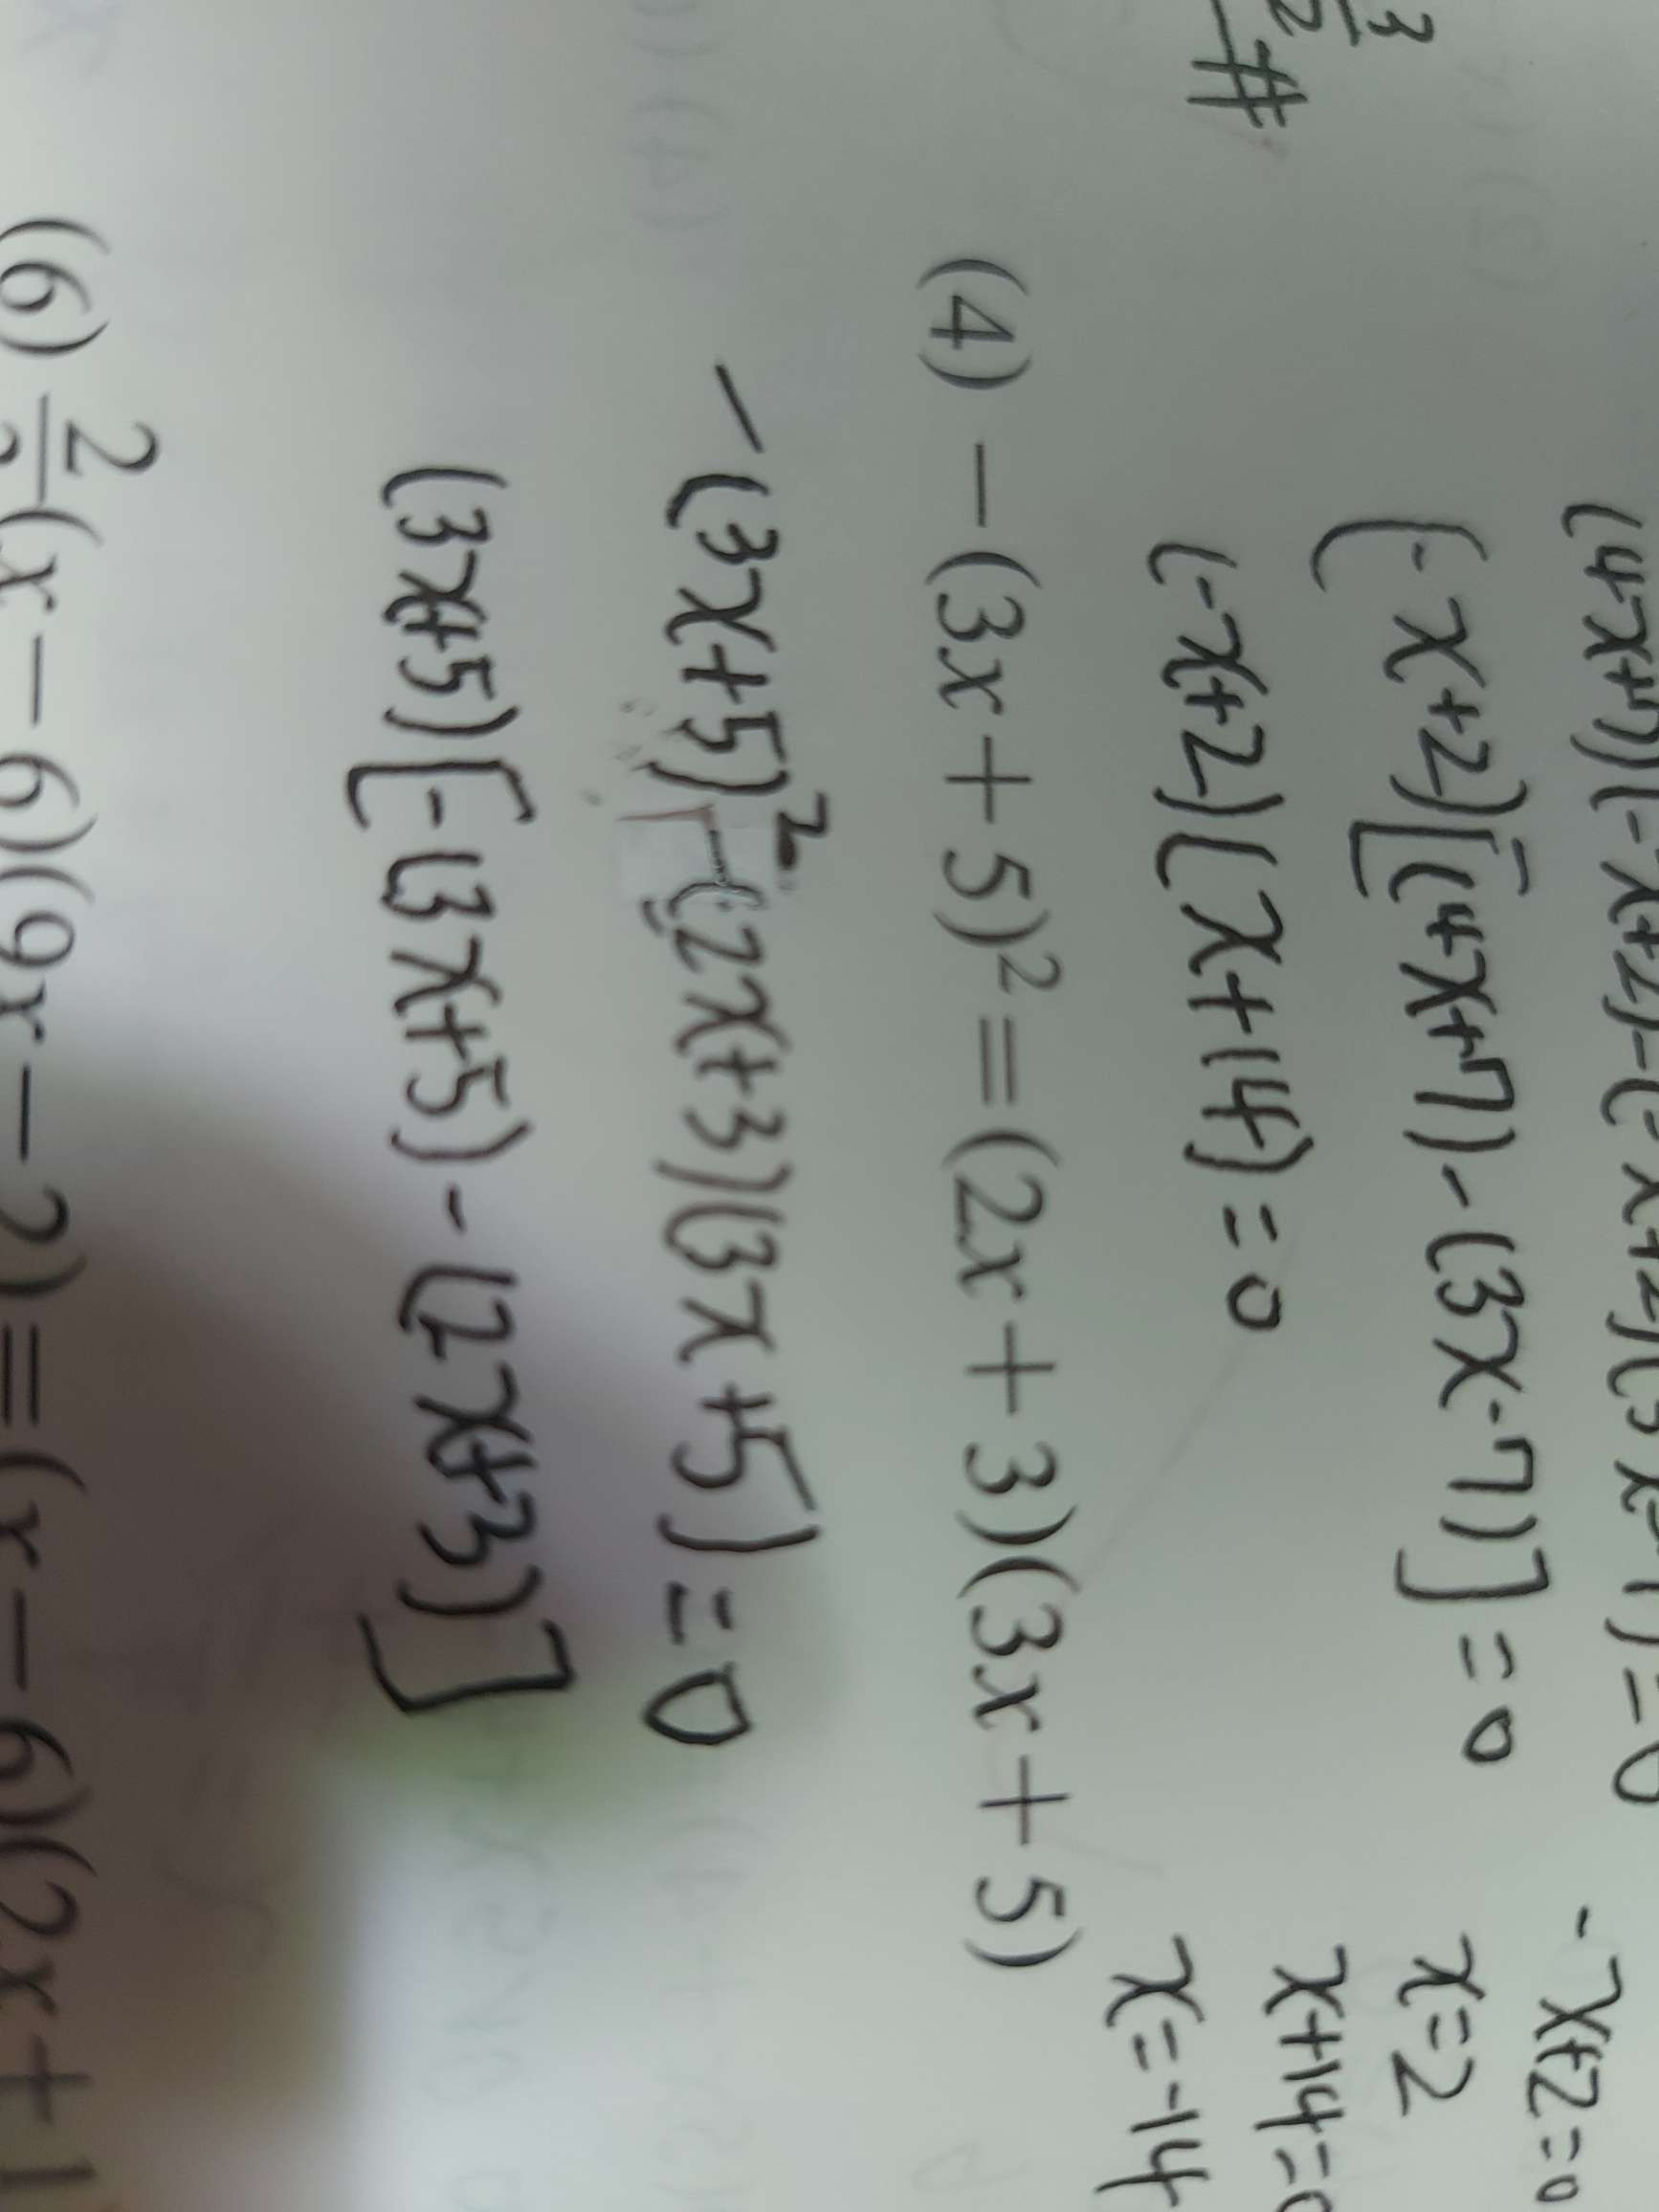 3
2 #
(4x+7)(-x+2)-(-x+2)(3x-7)=0
(-x+2)[(4x+7)-(3x-7)]=0
(-x+2)(x+14)=0
-x+2=0
x=2
x+14=0
x=-14
(4) -(3x+5)²=(2x+3)(3x+5)
-(3x+5)²-(2x+3)(3x+5)=0
(3x+5)[-(3x+5)-(2x+3)]
(6) 2 (x-6)(9x-2)=(x-6)(2x+1